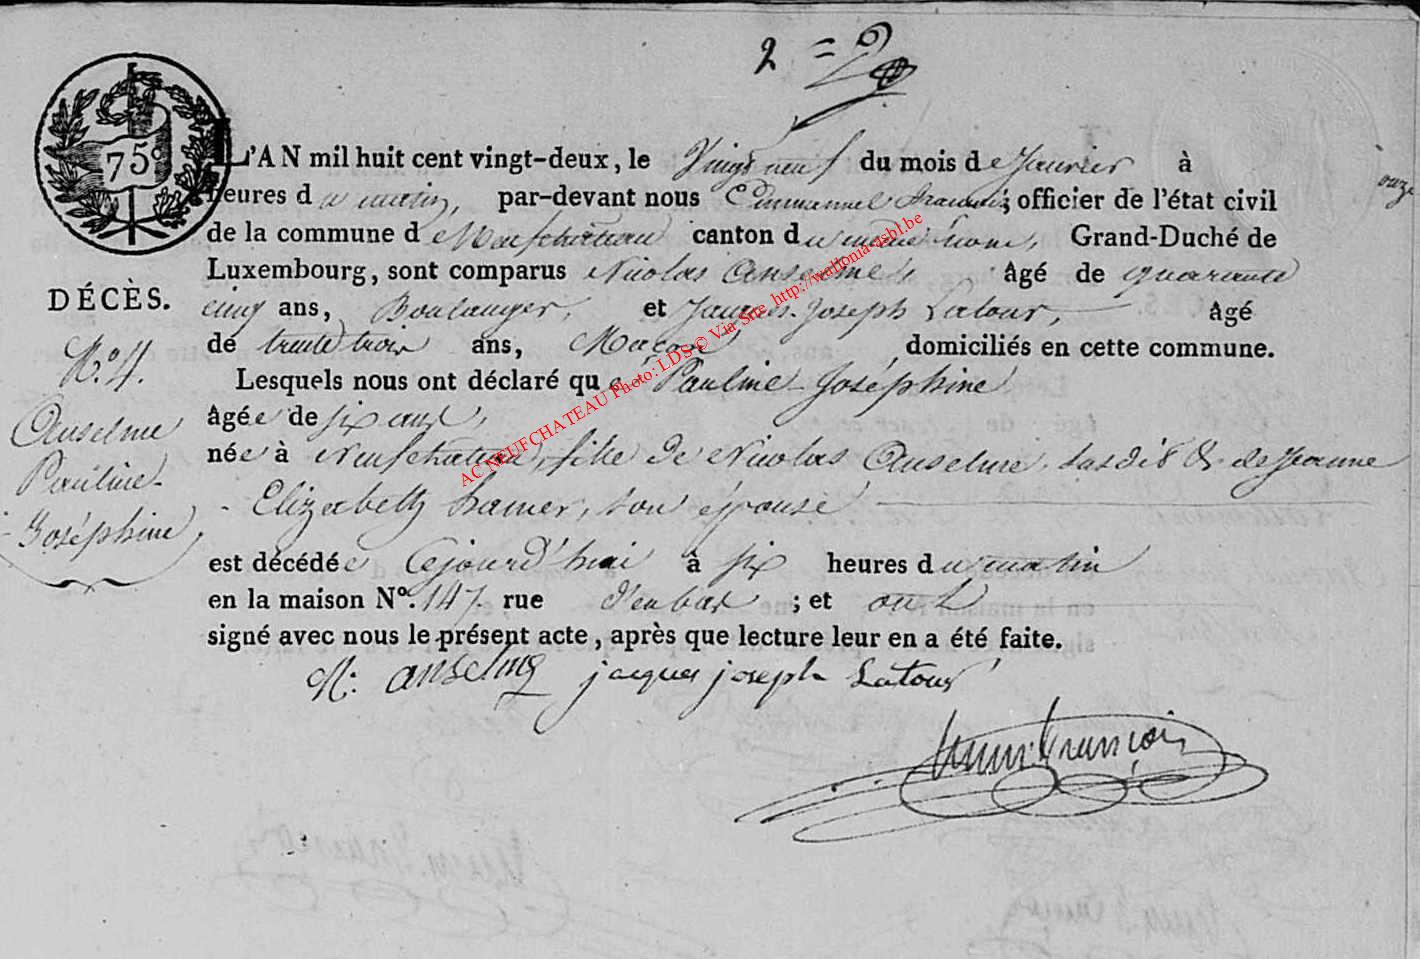 2 = 2
75
L'AN mil huit cent vingt-deux, le Vingt neuf du mois de Janvier à onze
heures du matin, par-devant nous Emmanuel François; officier de l'état civil
de la commune de Neufchateau canton du même nom, Grand-Duché de
Luxembourg, sont comparus Nicolas Anselme, âgé de quarante
cinq ans, Boulanger, et Jacques Joseph Latour, âgé
de trente trois ans, Maçon, domiciliés en cette commune.
Lesquels nous ont déclaré que Pauline Joséphine
âgée de six ans,
née à Neufchateau, fille de Nicolas Anselme, susdit & de Jeanne
Elizabeth hamer, son épouse
est décédée cejourd'hui à six heures du matin
en la maison No. 147 rue d'enbas ; et ont
signé avec nous le présent acte, après que lecture leur en a été faite.
N: anselme jacques joseph Latour
Emm. François
DÉCÈS.
N.º 4.
Anselme
Pauline
Joséphine
AC NEUFCHATEAU Photo: LDS © Via Site http://wallonia-asbl.be